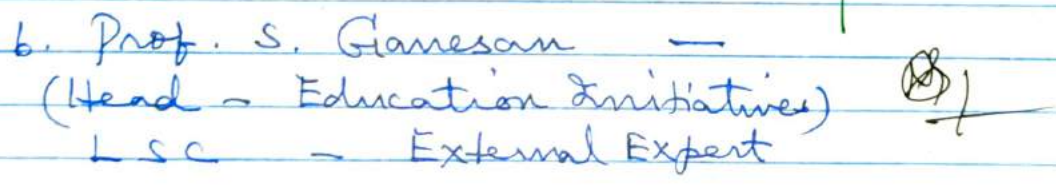 6. Prof. S. Ganesan —
(Head - Education Initiatives)
LSC - External Expert